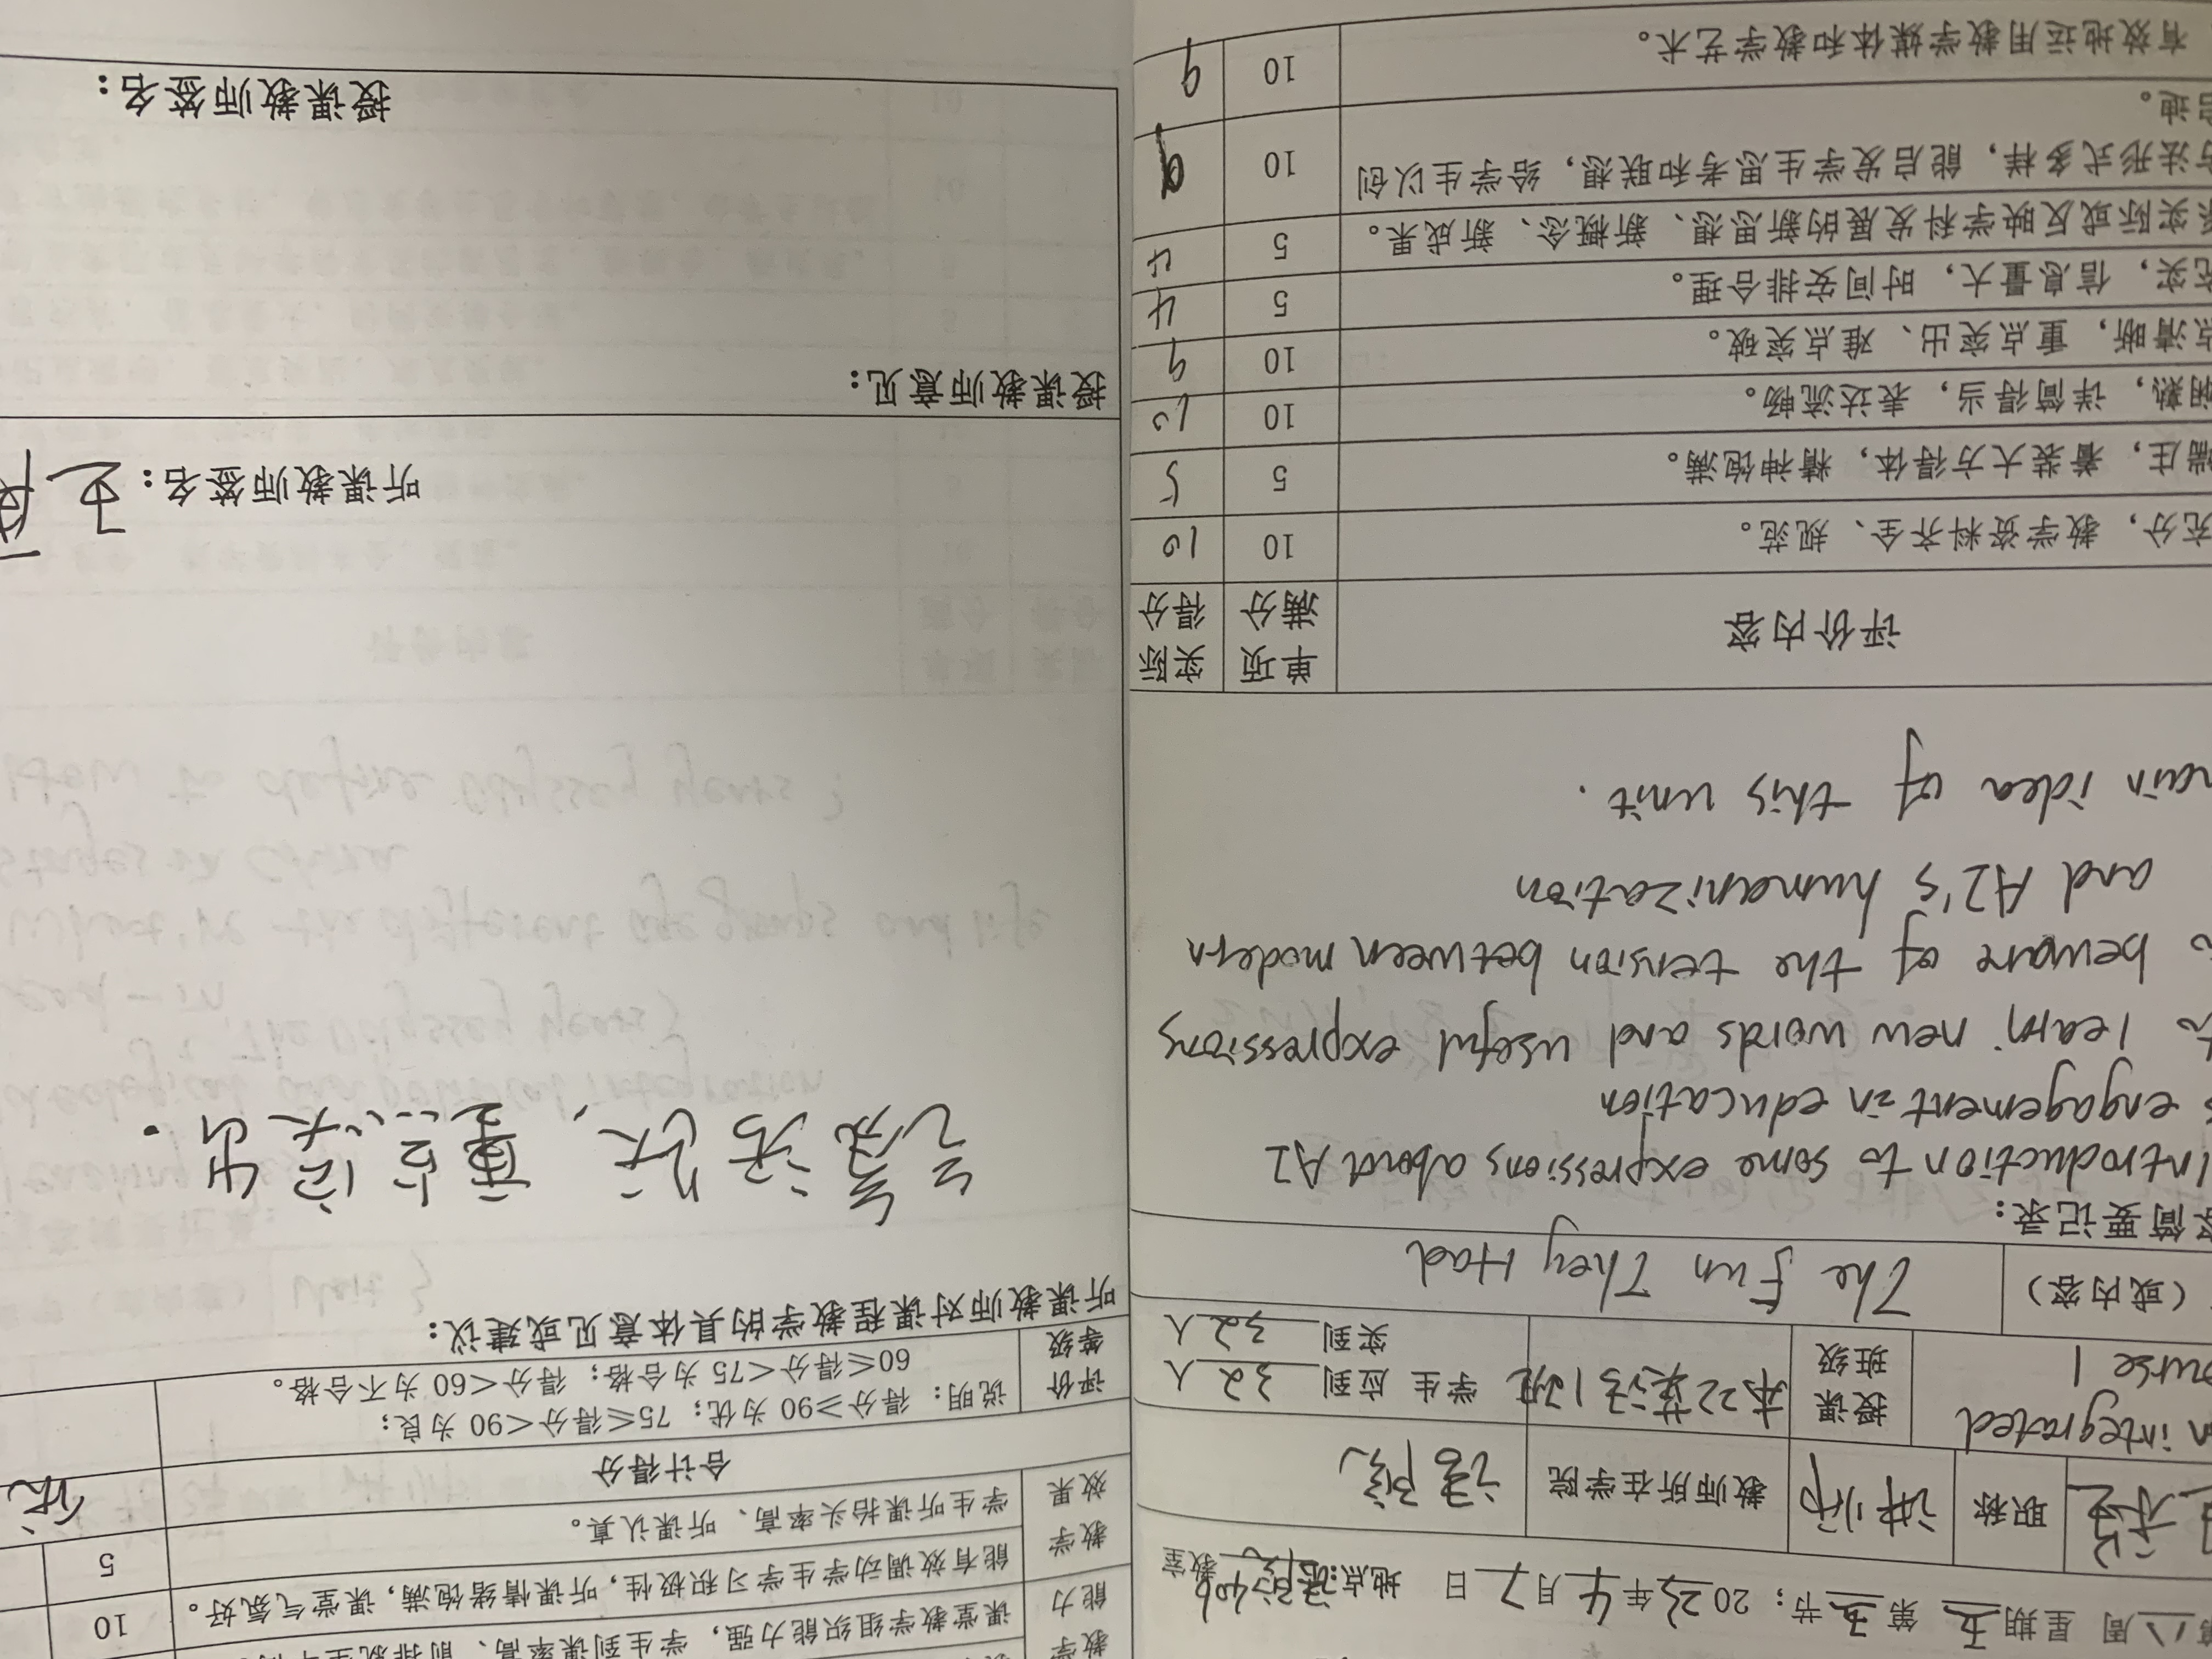 周 星期五 第五节； 2023年4月7日 地点： 教室
职称 讲师 教师所在学院
integrated
授课
班级
本22英语1班
学生 应到 32 人
实到 32 人
（或内容） The Fun They Had
简要记录：
Introduction to some expressions abord A2
engagement in education
learn new words and useful expressions
beware of the tension between modern
and A2's humanization
idea of this unit.
评价内容 单项满分 实际得分
充分，教学资料齐全、规范。 10 10
端庄，着装大方得体，精神饱满。 5 5
娴熟，详简得当，表达流畅。 10 10
清晰，重点突出、难点突破。 10 9
充实，信息量大，时间安排合理。 5 4
实际或反映学科发展的新思想、新概念、新成果。 5 4
方法形式多样，能启发学生思考和联想，给学生以创 10 9
启迪。
有效地运用教学媒体和教学艺术。 10 9
教学
能力
课堂教学组织能力强，学生到课率高、前排就坐
能有效调动学生学习积极性，听课情绪饱满，课堂气氛好。 10
教学
效果
学生听课抬头率高、听课认真。 5
合计得分 优
评价
等级
说明：得分≥90 为优；75≤得分＜90 为良；
60≤得分＜75 为合格；得分＜60 为不合格。
听课教师对课程教学的具体意见或建议：
气氛活跃，重点突出.
听课教师签名：
授课教师意见：
授课教师签名：